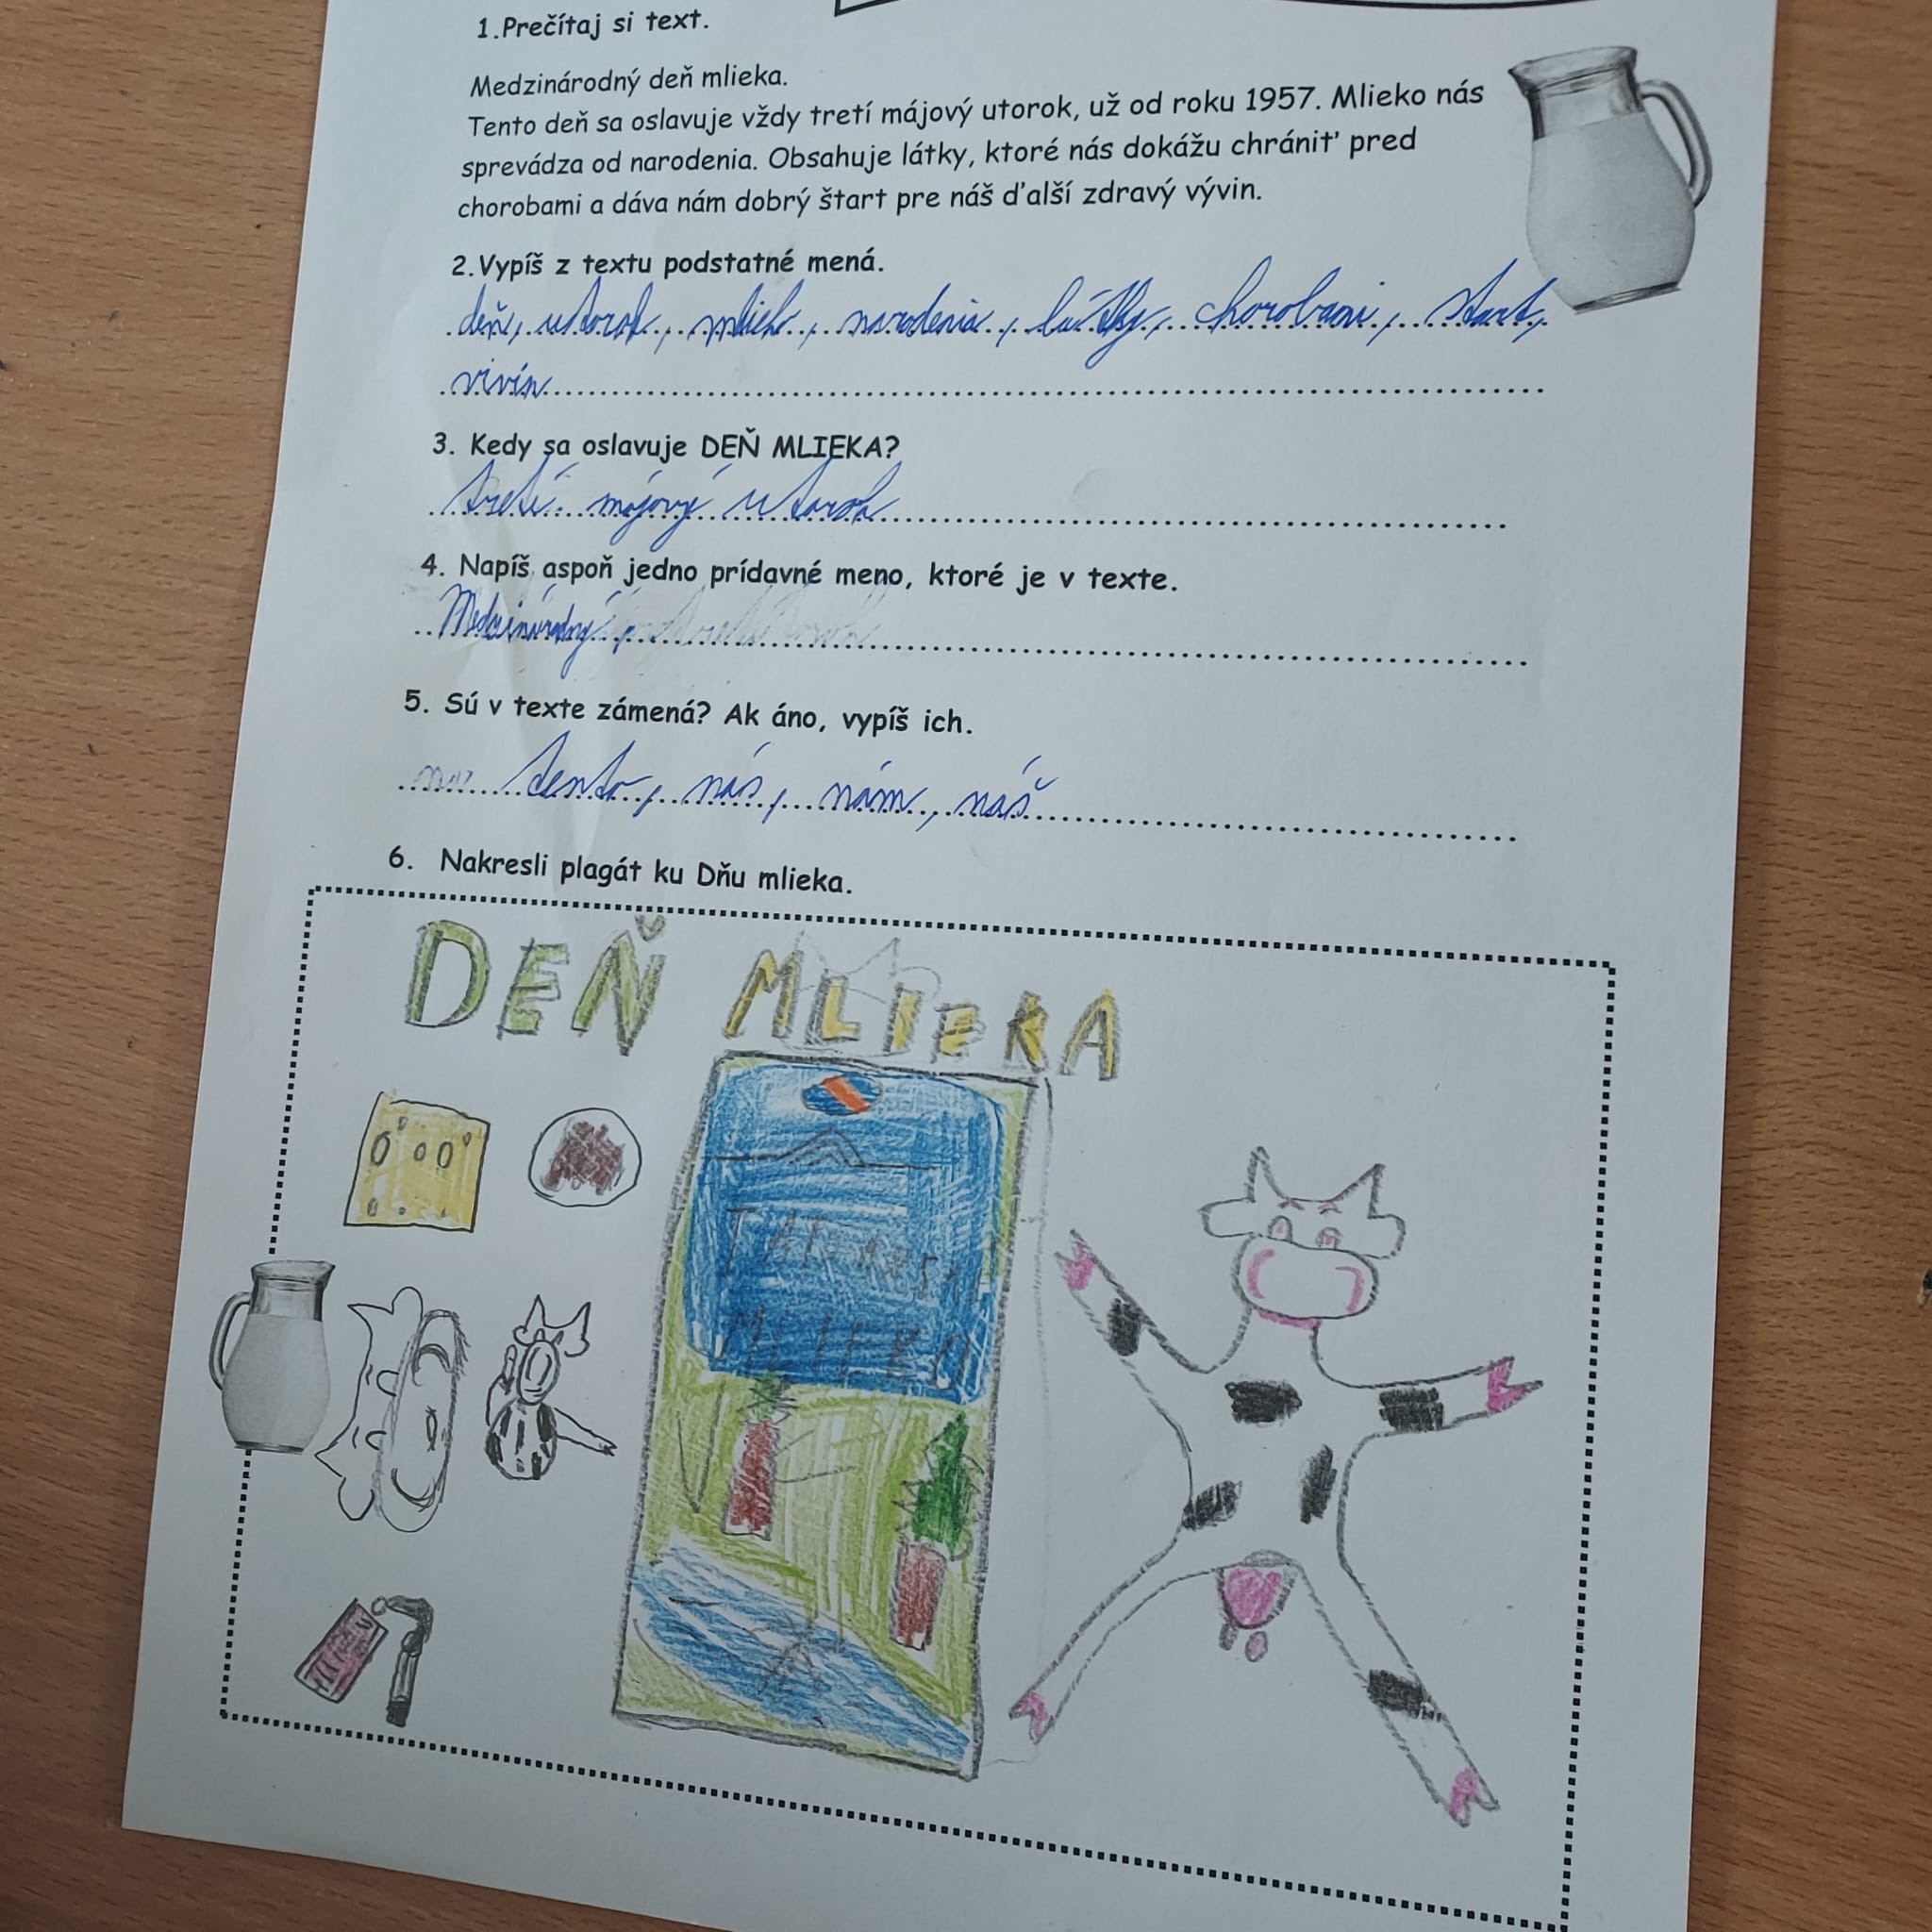 1.Prečítaj si text.
Medzinárodný deň mlieka.
Tento deň sa oslavuje vždy tretí májový utorok, už od roku 1957. Mlieko nás
sprevádza od narodenia. Obsahuje látky, ktoré nás dokážu chrániť pred
chorobami a dáva nám dobrý štart pre náš ďalší zdravý vývin.
2.Vypíš z textu podstatné mená.
deň, utorok, mlieko, narodenia, látky, chorobami, štart,
vivín
3. Kedy sa oslavuje DEŇ MLIEKA?
tretí májový utorok
4. Napíš aspoň jedno prídavné meno, ktoré je v texte.
Medzinárodný,
5. Sú v texte zámená? Ak áno, vypíš ich.
tento, nás, nám, náš
6. Nakresli plagát ku Dňu mlieka.
DEŇ MLIEKA
MLIEKO